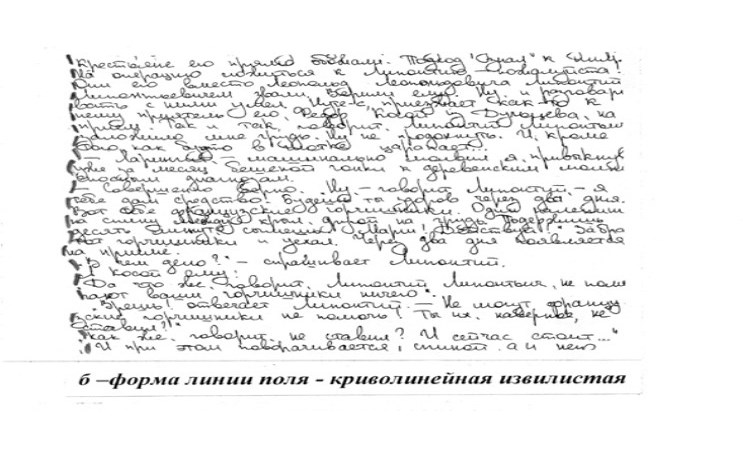 Крестьяне его прямо обожали. Подход знал к ним.
На операцию ложиться к Липонтию - пожалуйста!
Они его вместо Леопольд Леопольдовича Липонтий
Липонтьевичем звали. Верили ему. Ну, и разговари
вать с ними умел. Ите-с, приезжает как-то к
нему приятель его, Федор Косой из Дульцева, на
прием. Так и так, говорит, Липонтий Липонтьич
заложило мне грудь. Ну не продохнуть. И, кроме
того, как будто в глотке царапает.
- Ларингит, - машинально молвил я, привыкнув
уже за месяц бешеной гонки к деревенским молни
еносным диагнозам.
- Совершенно верно. "Ну, - говорит Липонтий, - я
тебе дам средство. Будешь ты здоров через два дня.
Вот тебе французские горчишники. Один налепишь
на спину между крыл, другой на грудь. Подержишь
десять минут, сымешь. Марш! Действуй!" Забра
тот горчишники и уехал. Через два дня появляется
на приеме.
"В чем дело?" - спрашивает Липонтий.
А косой ему:
"Да что ж, говорит, Липонтий Липонтьич, не помо
гают ваши горчишники ничего."
"Врешь! отвечает Липонтий. - Не могут францу
зские горчишники не помочь! Ты их, наверное, не
ставил?"
"Как же, говорит, не ставил? И сейчас стоит..."
И при этом поворачивается спиной, а у него
б –форма линии поля - криволинейная извилистая